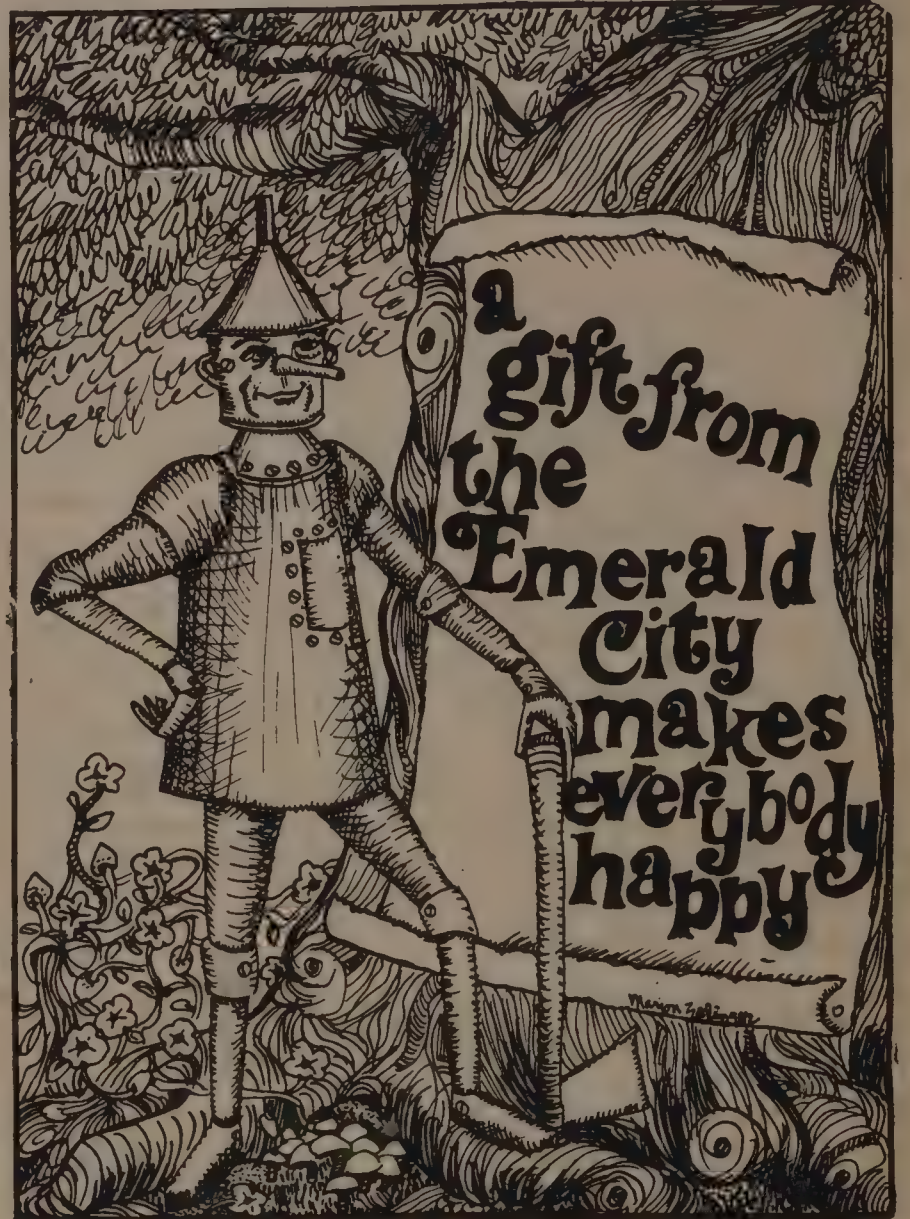 a
gift from
the
Emerald
City
makes
everybody
happy